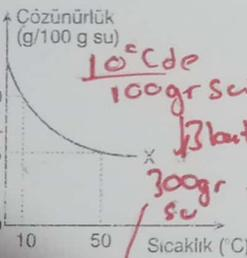 Çözünürlük
(g/100 g su)
10°C de
100gr su
300gr
su
X
10 50 Sıcaklık (°C)